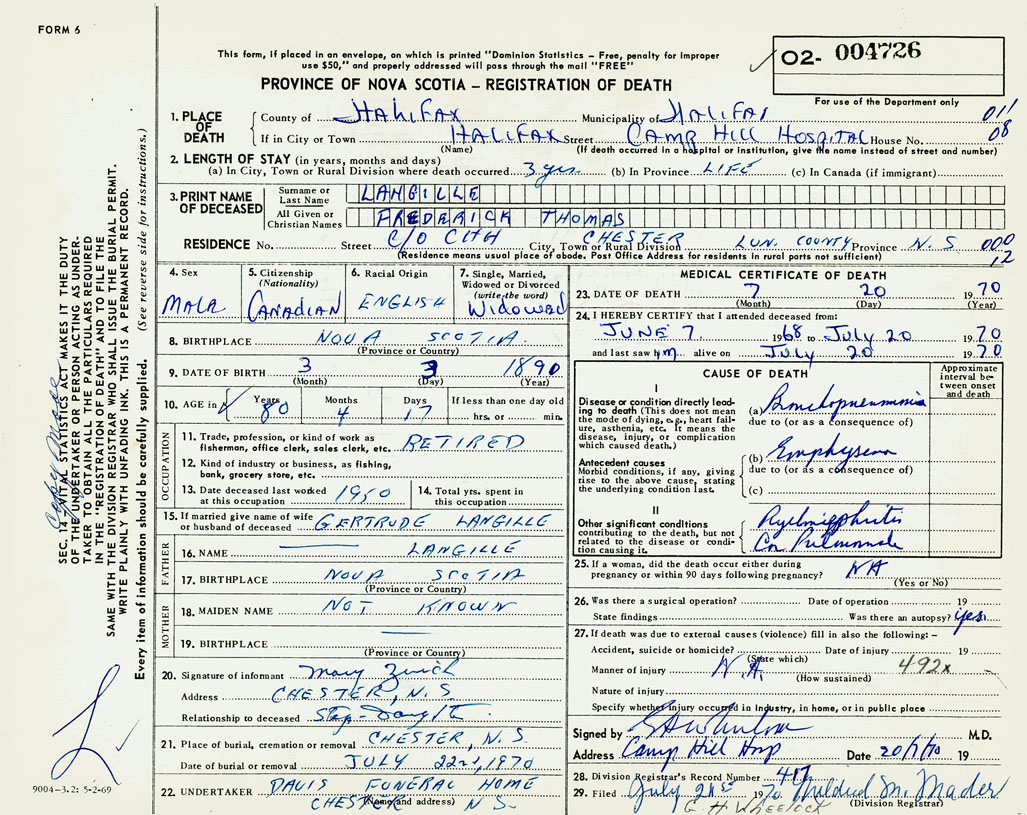 FORM 6
This form, if placed in an envelope, on which is printed "Dominion Statistics – Free, penalty for improper
use $50," and properly addressed will pass through the mail "FREE"
O2- 004726
For use of the Department only
PROVINCE OF NOVA SCOTIA – REGISTRATION OF DEATH
1. PLACE OF DEATH County of HALIFAX Municipality of HALIFAX 011
If in City or Town HALIFAX Street CAMP HILL HOSPITAL House No. 08
(Name) (If death occurred in a hospital or institution, give the name instead of street and number)
2. LENGTH OF STAY (in years, months and days)
(a) In City, Town or Rural Division where death occurred 3 yrs. (b) In Province LIFE (c) In Canada (if immigrant)
3. PRINT NAME OF DECEASED Surname or Last Name LANGILLE
All Given or Christian Names FREDERICK THOMAS
RESIDENCE No. Street C/O CHH City, Town or Rural Division CHESTER LUN. COUNTY Province N.S 000
(Residence means usual place of abode. Post Office Address for residents in rural parts not sufficient) 12
4. Sex MALE
5. Citizenship (Nationality) Canadian
6. Racial Origin ENGLISH
7. Single, Married, Widowed or Divorced (write the word) Widowed
8. BIRTHPLACE NOVA SCOTIA
(Province or Country)
9. DATE OF BIRTH 3 3 1890
(Month) (Day) (Year)
10. AGE in Years 80 Months 4 Days 17 If less than one day old hrs. or min.
OCCUPATION
11. Trade, profession, or kind of work as fisherman, office clerk, sales clerk, etc. RETIRED
12. Kind of industry or business, as fishing, bank, grocery store, etc.
13. Date deceased last worked at this occupation 1950
14. Total yrs. spent in this occupation
15. If married give name of wife or husband of deceased GERTRUDE LANGILLE
FATHER
16. NAME LANGILLE
17. BIRTHPLACE NOVA SCOTIA
(Province or Country)
MOTHER
18. MAIDEN NAME NOT KNOWN
19. BIRTHPLACE
(Province or Country)
20. Signature of informant Mary Zwick
Address CHESTER, N.S
Relationship to deceased Step-Daughter
21. Place of burial, cremation or removal CHESTER, N.S.
Date of burial or removal JULY 22nd, 1970
22. UNDERTAKER DAVIS FUNERAL HOME
(Name and address) CHESTER N.S.
MEDICAL CERTIFICATE OF DEATH
23. DATE OF DEATH 7 20 1970
(Month) (Day) (Year)
24. I HEREBY CERTIFY that I attended deceased from:
JUNE 7 1968 to July 20 1970
and last saw him alive on July 20 1970
CAUSE OF DEATH
Approximate interval between onset and death
I
Disease or condition directly leading to death (This does not mean the mode of dying, e.g., heart failure, asthenia, etc. It means the disease, injury, or complication which caused death.)
(a) Bronchopneumonia
due to (or as a consequence of)
Antecedent causes
Morbid conditions, if any, giving rise to the above cause, stating the underlying condition last.
(b) Emphysema
due to (or as a consequence of)
(c)
II
Other significant conditions contributing to the death, but not related to the disease or condition causing it.
Pyelonephritis
Cor Pulmonale
25. If a woman, did the death occur either during pregnancy or within 90 days following pregnancy? NA
(Yes or No)
26. Was there a surgical operation? Date of operation 19
State findings Was there an autopsy? yes
27. If death was due to external causes (violence) fill in also the following: –
Accident, suicide or homicide? Date of injury 19
(State which)
Manner of injury N.A. 492x
(How sustained)
Nature of injury
Specify whether injury occurred in industry, in home, or in public place
Signed by M.D.
Address Camp Hill Hosp Date 20/7/70 19
28. Division Registrar's Record Number 417
29. Filed July 21st 1970 Mildred M. Mader
(Division Registrar)
G. H. Wheelock
SEC. 14 – VITAL STATISTICS ACT MAKES IT THE DUTY
OF THE UNDERTAKER OR PERSON ACTING AS UNDER-
TAKER TO OBTAIN ALL THE PARTICULARS REQUIRED
IN THE "REGISTRATION OF DEATH" AND TO FILE THE
SAME WITH THE DIVISION REGISTRAR WHO SHALL ISSUE THE BURIAL PERMIT.
WRITE PLAINLY WITH UNFADING INK. THIS IS A PERMANENT RECORD.
Every item of information should be carefully supplied. (See reverse side for instructions.)
Copy Made
9004-3.2: 5-2-69